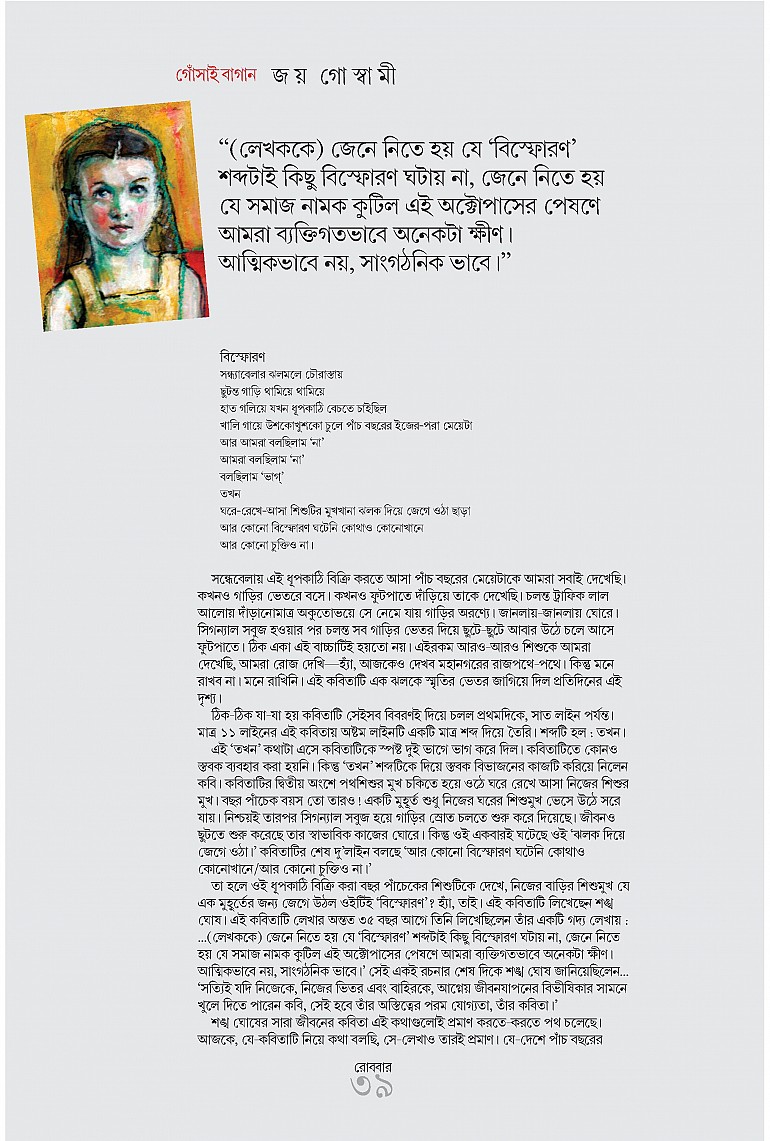 গোঁসাইবাগান জয় গোস্বামী
“(লেখককে) জেনে নিতে হয় যে ‘বিস্ফোরণ’
শব্দটাই কিছু বিস্ফোরণ ঘটায় না, জেনে নিতে হয়
যে সমাজ নামক কুটিল এই অক্টোপাসের পেষণে
আমরা ব্যক্তিগতভাবে অনেকটা ক্ষীণ।
আত্মিকভাবে নয়, সাংগঠনিক ভাবে।”
বিস্ফোরণ
সন্ধ্যাবেলার ঝলমলে চৌরাস্তায়
ছুটন্ত গাড়ি থামিয়ে থামিয়ে
হাত গলিয়ে যখন ধূপকাঠি বেচতে চাইছিল
খালি গায়ে উশকোখুশকো চুলে পাঁচ বছরের ইজের-পরা মেয়েটা
আর আমরা বলছিলাম ‘না’
আমরা বলছিলাম ‘না’
বলছিলাম ‘ভাগ্’
তখন
ঘরে-রেখে-আসা শিশুটির মুখখানা ঝলক দিয়ে জেগে ওঠা ছাড়া
আর কোনো বিস্ফোরণ ঘটেনি কোথাও কোনোখানে
আর কোনো চুক্তিও না।
সন্ধেবেলায় এই ধূপকাঠি বিক্রি করতে আসা পাঁচ বছরের মেয়েটাকে আমরা সবাই দেখেছি।
কখনও গাড়ির ভেতরে বসে। কখনও ফুটপাতে দাঁড়িয়ে তাকে দেখেছি। চলন্ত ট্রাফিক লাল
আলোয় দাঁড়ানোমাত্র অকুতোভয়ে সে নেমে যায় গাড়ির অরণ্যে। জানলায়-জানলায় ঘোরে।
সিগন্যাল সবুজ হওয়ার পর চলন্ত সব গাড়ির ভেতর দিয়ে ছুটে-ছুটে আবার উঠে চলে আসে
ফুটপাতে। ঠিক একা এই বাচ্চাটিই হয়তো নয়। এইরকম আরও-আরও শিশুকে আমরা
দেখেছি, আমরা রোজ দেখি—হ্যাঁ, আজকেও দেখব মহানগরের রাজপথে-পথে। কিন্তু মনে
রাখব না। মনে রাখিনি। এই কবিতাটি এক ঝলকে স্মৃতির ভেতর জাগিয়ে দিল প্রতিদিনের এই
দৃশ্য।
ঠিক-ঠিক যা-যা হয় কবিতাটি সেইসব বিবরণই দিয়ে চলল প্রথমদিকে, সাত লাইন পর্যন্ত।
মাত্র ১১ লাইনের এই কবিতায় অষ্টম লাইনটি একটি মাত্র শব্দ দিয়ে তৈরি। শব্দটি হল : তখন।
এই ‘তখন’ কথাটা এসে কবিতাটিকে স্পষ্ট দুই ভাগে ভাগ করে দিল। কবিতাটিতে কোনও
স্তবক ব্যবহার করা হয়নি। কিন্তু ‘তখন’ শব্দটিকে দিয়ে স্তবক বিভাজনের কাজটি করিয়ে নিলেন
কবি। কবিতাটির দ্বিতীয় অংশে পথশিশুর মুখ চকিতে হয়ে ওঠে ঘরে রেখে আসা নিজের শিশুর
মুখ। বছর পাঁচেক বয়স তো তারও! একটি মুহূর্ত শুধু নিজের ঘরের শিশুমুখ ভেসে উঠে সরে
যায়। নিশ্চয়ই তারপর সিগন্যাল সবুজ হয়ে গাড়ির স্রোত চলতে শুরু করে দিয়েছে। জীবনও
ছুটতে শুরু করেছে তার স্বাভাবিক কাজের ঘোরে। কিন্তু ওই একবারই ঘটেছে ওই ‘ঝলক দিয়ে
জেগে ওঠা।’ কবিতাটির শেষ দু’লাইন বলছে ‘আর কোনো বিস্ফোরণ ঘটেনি কোথাও
কোনোখানে/আর কোনো চুক্তিও না।’
তা হলে ওই ধূপকাঠি বিক্রি করা বছর পাঁচেকের শিশুটিকে দেখে, নিজের বাড়ির শিশুমুখ যে
এক মুহূর্তের জন্য জেগে উঠল ওইটিই ‘বিস্ফোরণ’? হ্যাঁ, তাই। এই কবিতাটি লিখেছেন শঙ্খ
ঘোষ। এই কবিতাটি লেখার অন্তত ৩৫ বছর আগে তিনি লিখেছিলেন তাঁর একটি গদ্য লেখায় :
...(লেখককে) জেনে নিতে হয় যে ‘বিস্ফোরণ’ শব্দটাই কিছু বিস্ফোরণ ঘটায় না, জেনে নিতে
হয় যে সমাজ নামক কুটিল এই অক্টোপাসের পেষণে আমরা ব্যক্তিগতভাবে অনেকটা ক্ষীণ।
আত্মিকভাবে নয়, সাংগঠনিক ভাবে।’ সেই একই রচনার শেষ দিকে শঙ্খ ঘোষ জানিয়েছিলেন...
‘সত্যিই যদি নিজেকে, নিজের ভিতর এবং বাহিরকে, আগ্নেয় জীবনযাপনের বিভীষিকার সামনে
খুলে দিতে পারেন কবি, সেই হবে তাঁর অস্তিত্বের পরম যোগ্যতা, তাঁর কবিতা।’
শঙ্খ ঘোষের সারা জীবনের কবিতা এই কথাগুলোই প্রমাণ করতে-করতে পথ চলেছে।
আজকে, যে-কবিতাটি নিয়ে কথা বলছি, সে-লেখাও তারই প্রমাণ। যে-দেশে পাঁচ বছরের
রোববার
৩৯